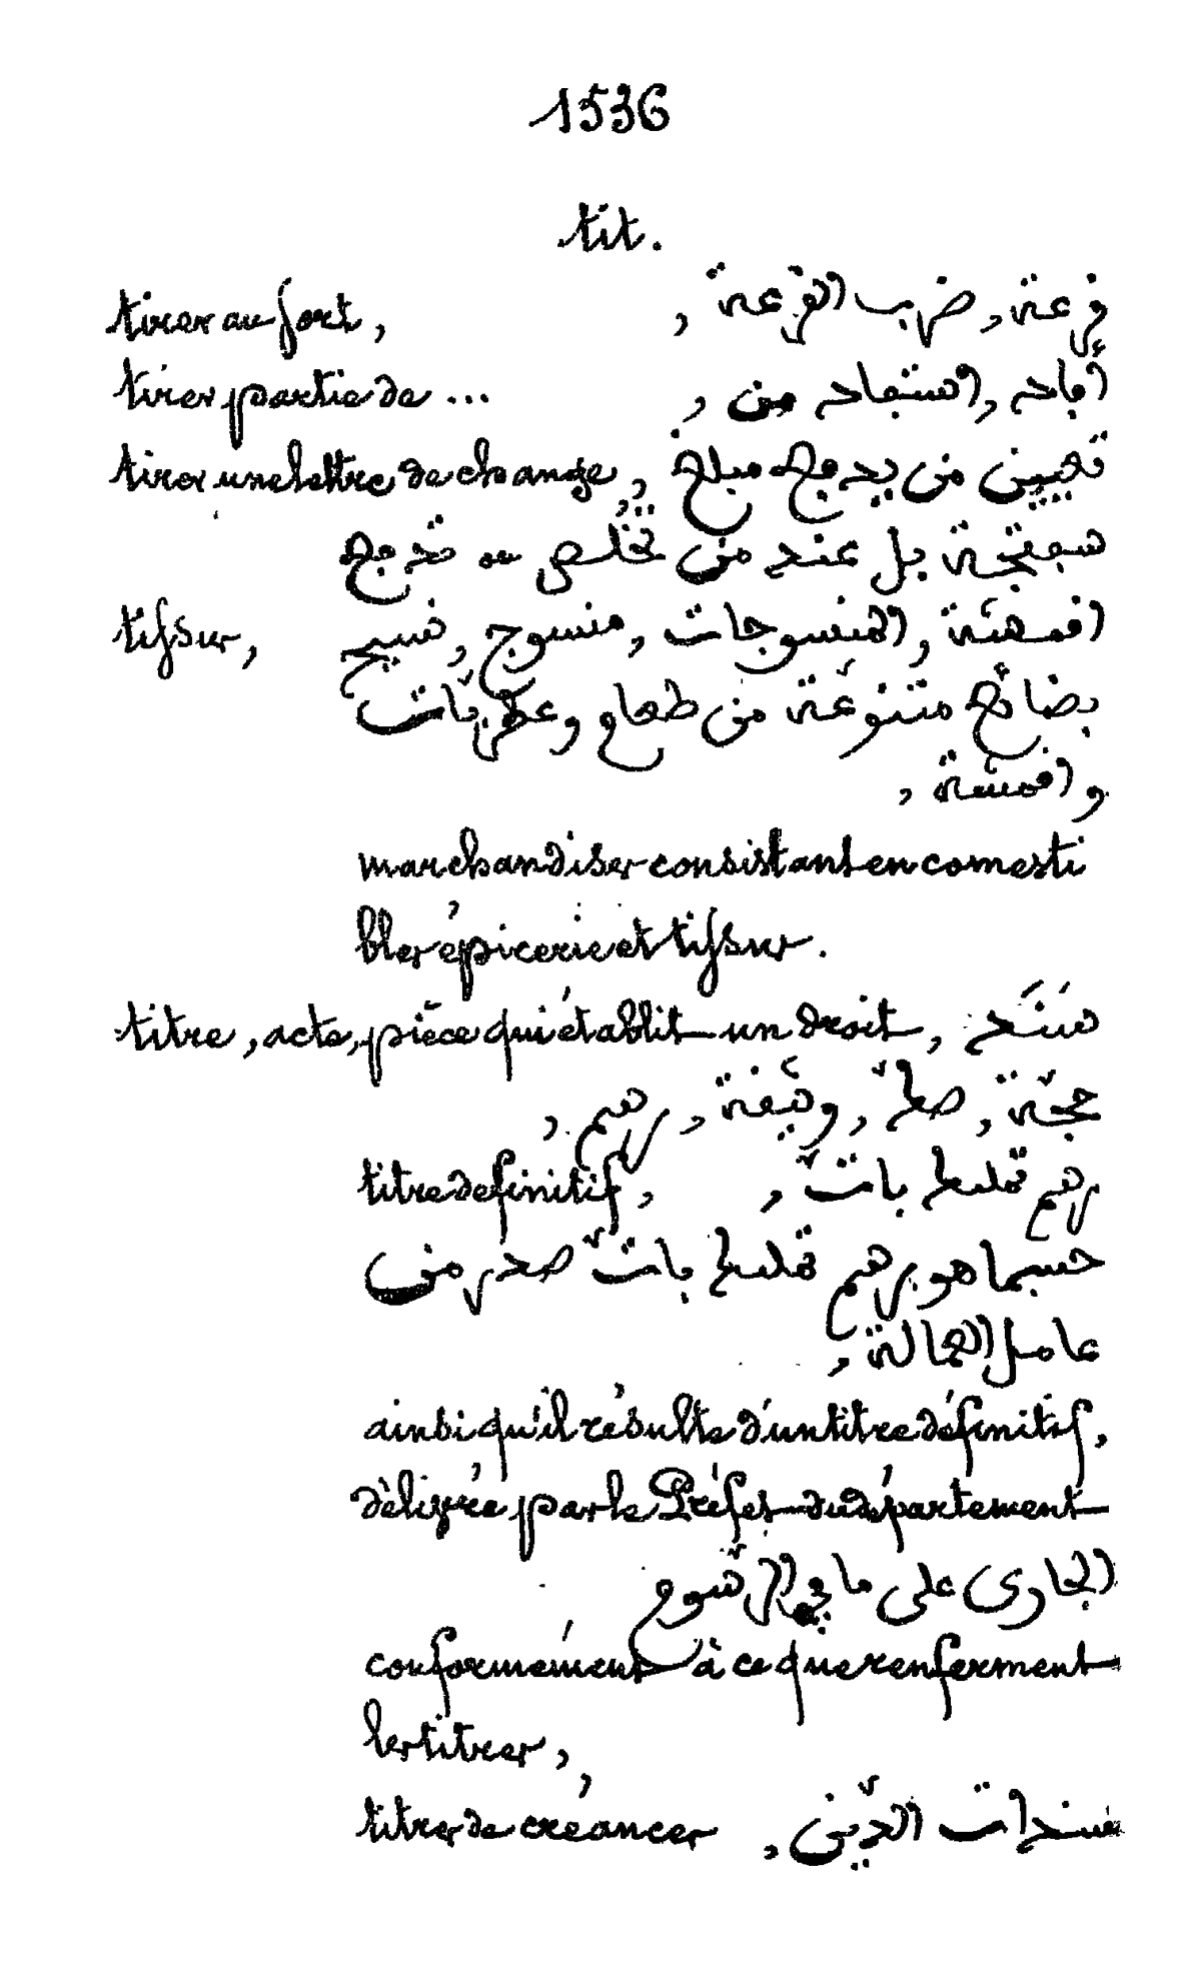 1536
tit.
tirer au sort, قرعة, ضرب القرعة,
tirer partie de ... أفاد, استفاد من,
tirer une lettre de change, تعيين من يدفع مبلغ
سفتجة بل عند من تخلص
tissus, اقمشة, المنسوجات, منسوج, نسيج
بضائع متنوّعة من طعام وعطريّات
واقمشة,
marchandises consistant en comesti
bles épicerie et tissus.
titre, acte, pièce qui établit un droit, سَنَد
حجّة, صكّ, وثيقة, رسم,
titre definitif, رسم تمليك باتّ,
حسبما هو برسم تمليك باتّ صدر من
عامل العمالة,
ainsi qu'il résulte d'un titre définitif,
délivrée par le Préfet du département
الجاري على ما في الرّسوم
conformément à ce que renferment
les titres,
titres de créances, سندات الدّين,